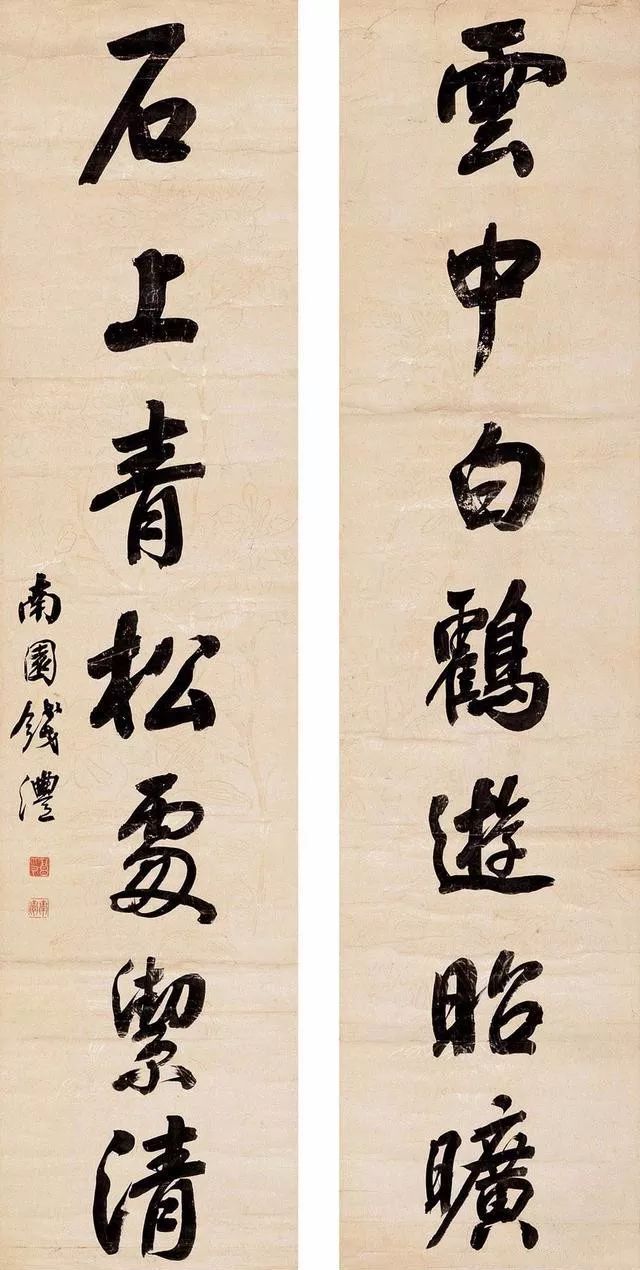 雲中白鸛遊昭曠
石上青松處潔清
南園錢灃